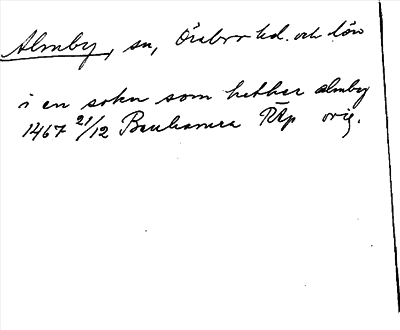 Almby, sn, Örebro hd. och län
i en sokn som hether almby
1467 21/12 RAp orig.